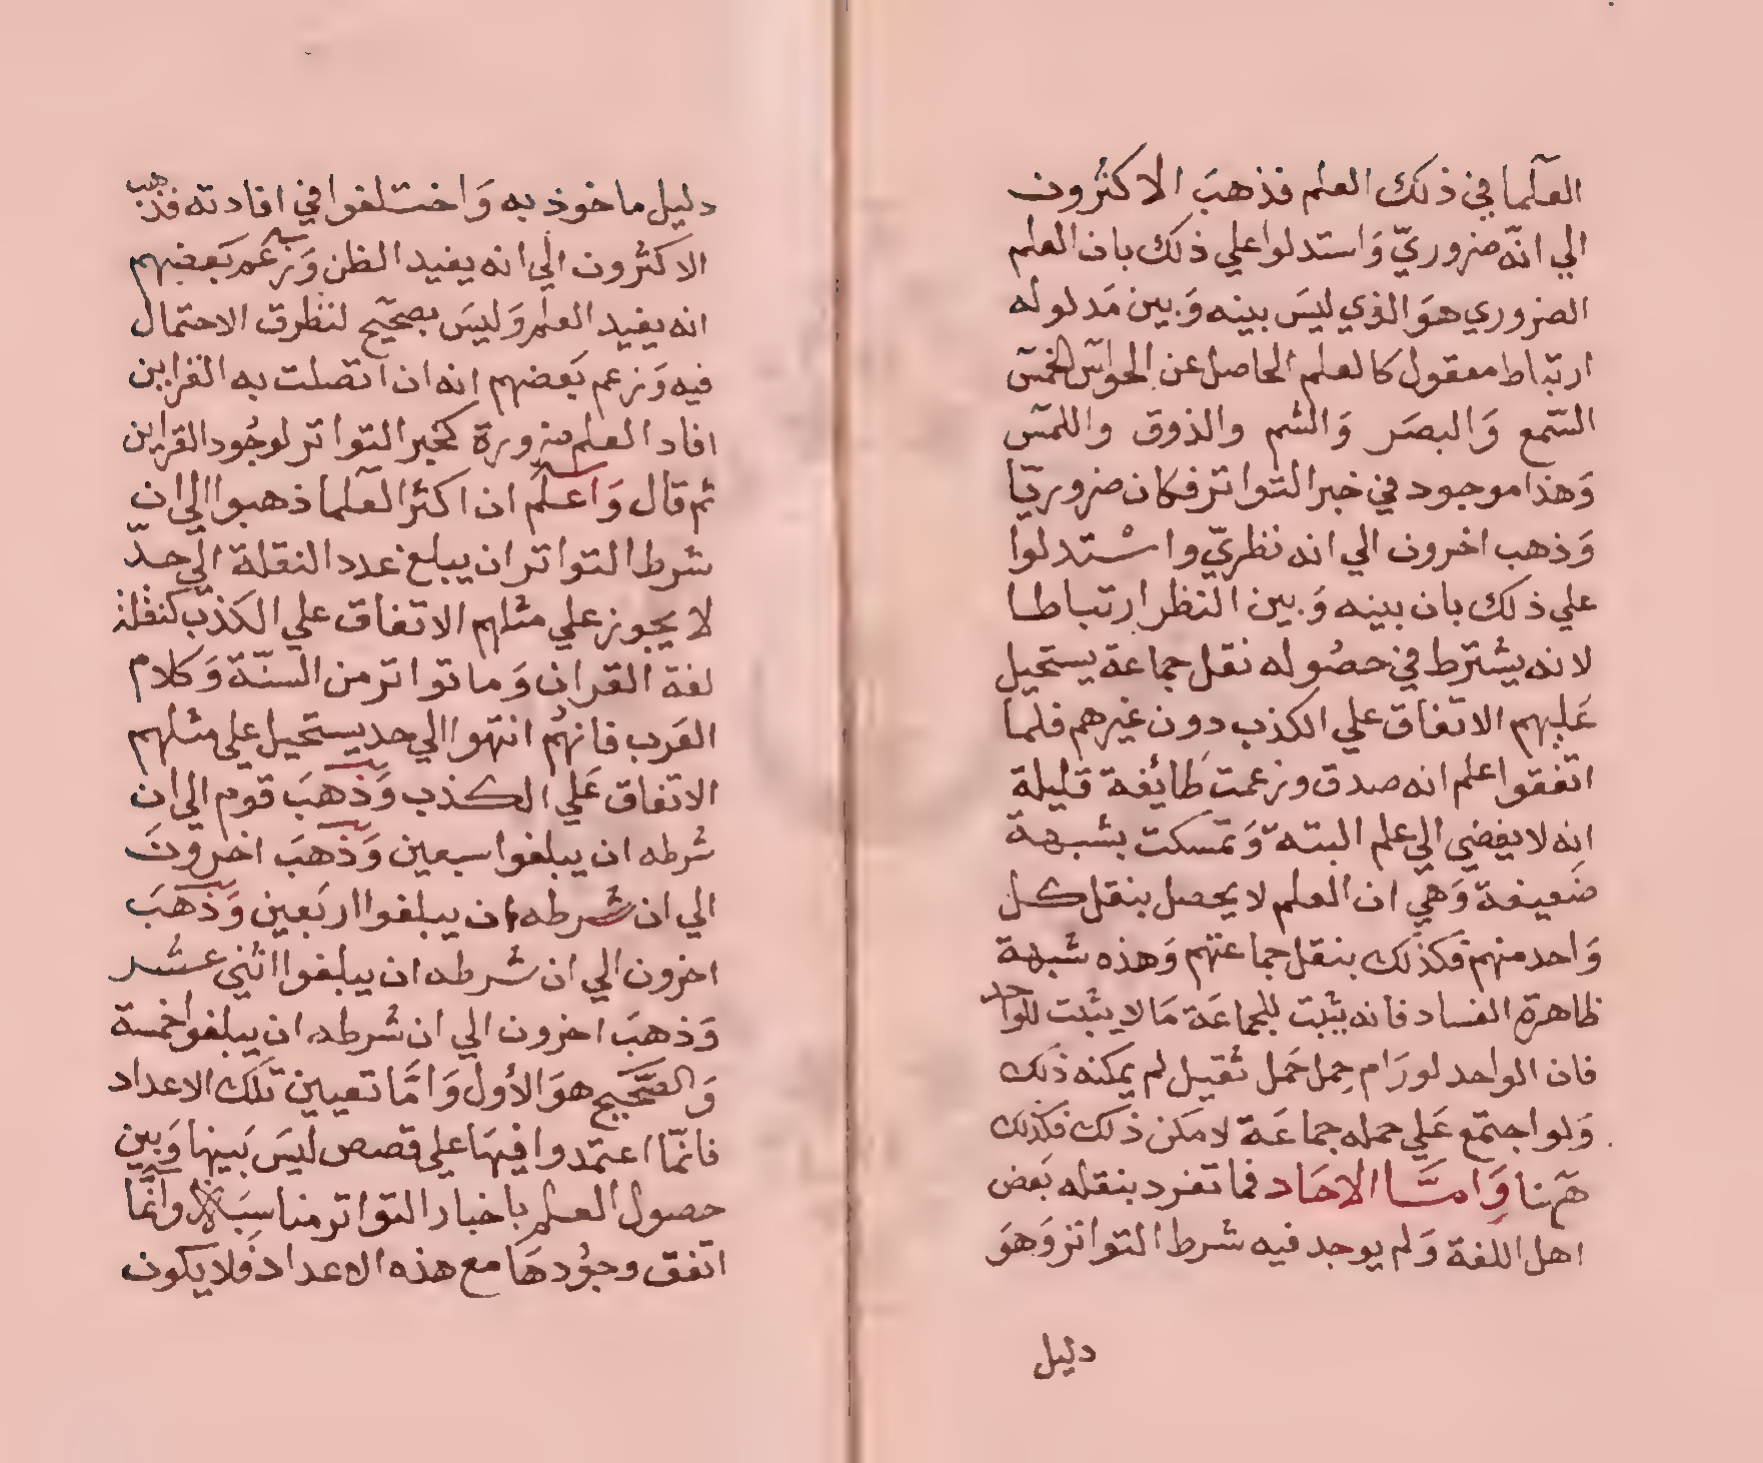 العلما في ذلك العلم فذهبَ الاكثرون
الي انّه ضروريّ وَاستدلوا علي ذلك بان العلم
الضروري هوَ الذي ليسَ بينه وَبين مَدلوله
ارتباط معقول كالعلم الحاصل عن الحواسّ الخمس
السّمع وَالبصَر وَالشم والذوق واللمس
وَهذا موجود في خبر التواتر فكان ضروريّا
وَذهب اخرون الي انه نظريّ واستدلوا
علي ذلك بان بينه وَبين النظر ارتباطا
لانه يشترط في حصُوله نقل جماعة يستحيل
عَليهم الاتفاق علي الكذب دون غيرهم فلما
اتفقوا علم انه صدق وزعمت طائفة قليلة
انه لا يفضي الي علم البتة وَتمسكت بشبهة
ضَعيفة وَهي ان العلم لا يحصل بنقل كل
وَاحد منهم فكذلك بنقل جماعتهم وَهذه شبهة
ظاهرة الفساد فانه يثبت للجماعَة مَا لا يثبت للواحد
فان الواحد لو رَام حِمل حَمل ثقيل لم يمكنه ذلك
وَلو اجتمع عَلي حمله جماعَة لامكن ذلك فكذلك
هٓهنا وَامّا الاحَاد فما تفرد بنقله بَعض
اهل اللغة وَلم يوجد فيه شرط التواتر وَهوَ
دليل
دليل ماخوذ به وَاختلفوا في افادته فذهب
الاكثرون الي انه يفيد الظن وَزعم بَعضهم
انه يفيد العلم وَليسَ بصحيح لتطرق الاحتمال
فيه وَزعم بَعضهم انه ان اتصلت به القراين
افاد العلم ضرورة كخبر التواتر لوجُود القراين
ثم قال وَاعلم ان اكثر العلما ذهبوا الي ان
شرط التواتر ان يبلغ عدد النقلة الي حدّ
لا يجوز علي مثلهم الاتفاق علي الكذب كنقلة
لغة القران وَما تواتر من السنّة وَكلام
العَرب فانهُم انتهوا الي حد يستحيل علي مثلهم
الاتفاق عَلي الكذب وَذهَبَ قوم الي ان
شرطه ان يبلغوا سبعين وَذهَبَ اخرونَ
الي ان شرطه ان يبلغوا اربَعين وَذهَبَ
اخرون الي ان شرطه ان يبلغوا اثني عشر
وَذهبَ اخرون الي ان شرطه ان يبلغوا خمسة
وَالصّحيح هوَ الأول وَامَّا تعيين تلك الاعداد
فانمّا اعتمدوا فيهَا علي قصص ليسَ بَينها وَبين
حصول العلم باخبار التواتر مناسبَة وَانَّما
اتفق وجوُدهَا مع هذه الاعداد فلا يكون